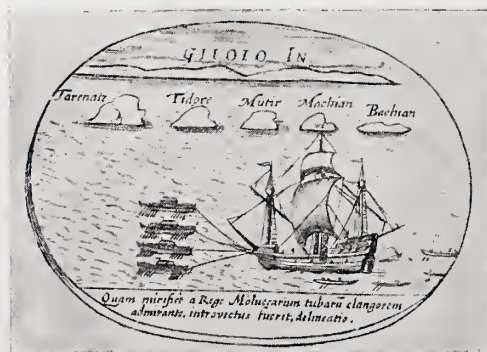 GILOLO IN
Tarenate Tidore Mutir Machian Bachian
Quam mirifice a Rege Moluccarum tubarū clangorem
admirante, introvectus fuerit, delineatio.